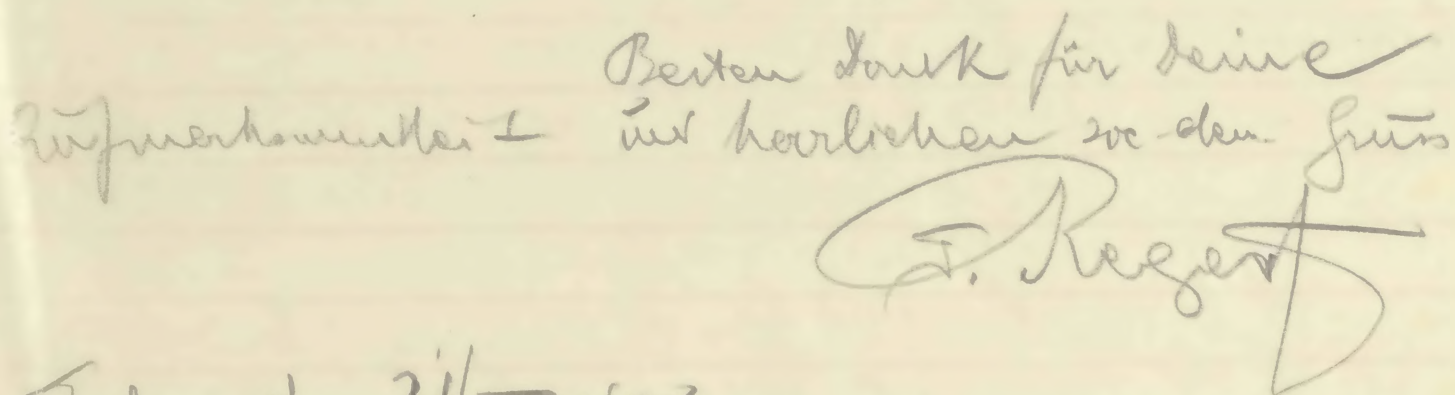 Besten Dank für Deine
Aufmerksamkeit und herzlichen soc-dem Gruss
F. Regert